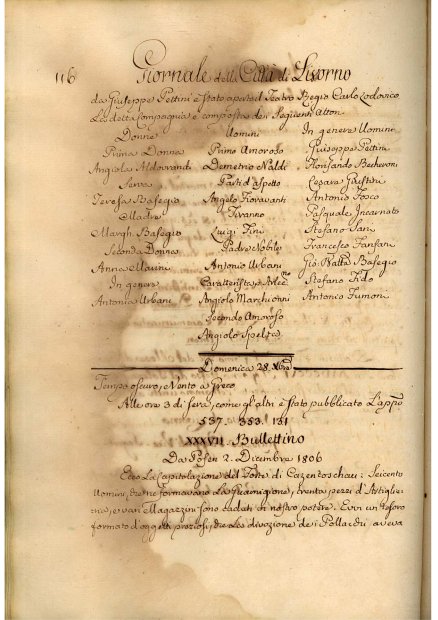 116
Giornale della Città di Livorno
da Giuseppe Pettini è stato aperto il Teatro Regio Carlo Lodovico
La detta Compagnia è composta dei seguenti Attori
Donne Uomini In genere Uomini
Prima Donna Primo Amoroso Giuseppe Pettini
Angiola Aldovrandi Demetrio Naldi Ferdinando Becheroni
Serva Parti d'aspetto Cesare Giustini
Teresa Basegio Angelo Fioravanti Antonio Fosco
Madre Tiranno Pasquale Incarnato
Margh. Basegio Luigi Fini Stefano Sani
Seconda Donna Padre Nobile Francesco Fanfani
Anna Maurini Antonio Urbani Gio: Batta Basegio
In genere Caratterista e Arlec.no Stefano Fido
Antonia Urbani Angiolo Marchionni Antonio Fumoni
Secondo Amoroso
Angiolo
Domenica 28. Xbre
Tempo oscuro, Vento a Greco
Alle ore 3 di sera, come gl'altri è stato pubblicato L'app.o
537. 353. 131
XXXVII. Bullettino
Da Posen 2. Dicembre 1806
Ecco La Capitolazione del Forte di Czentoschau: Seicento
Uomini, che ne formavano La Guarnigione, trenta pezzi d'Artiglie:
ria, e vari Magazzini sono caduti in nostro potere. Evvi un Tesoro
formato d'oggetti preziosi, che La divozione dei Pollacchi aveva